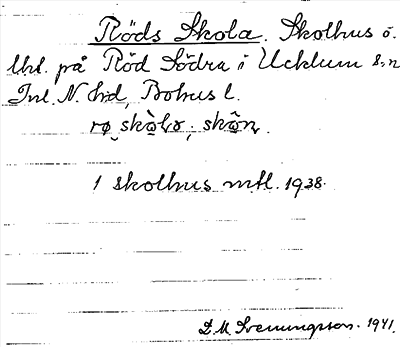 Röds Skola. Skolhus o.
lht. på Röd Södra i Ucklum s:n
Inl. N. hd, Bohus l.
rø skὰlɒ ; skōn.
1 skolhus mtl. 1938.
D. M. Svenungsson. 1941.